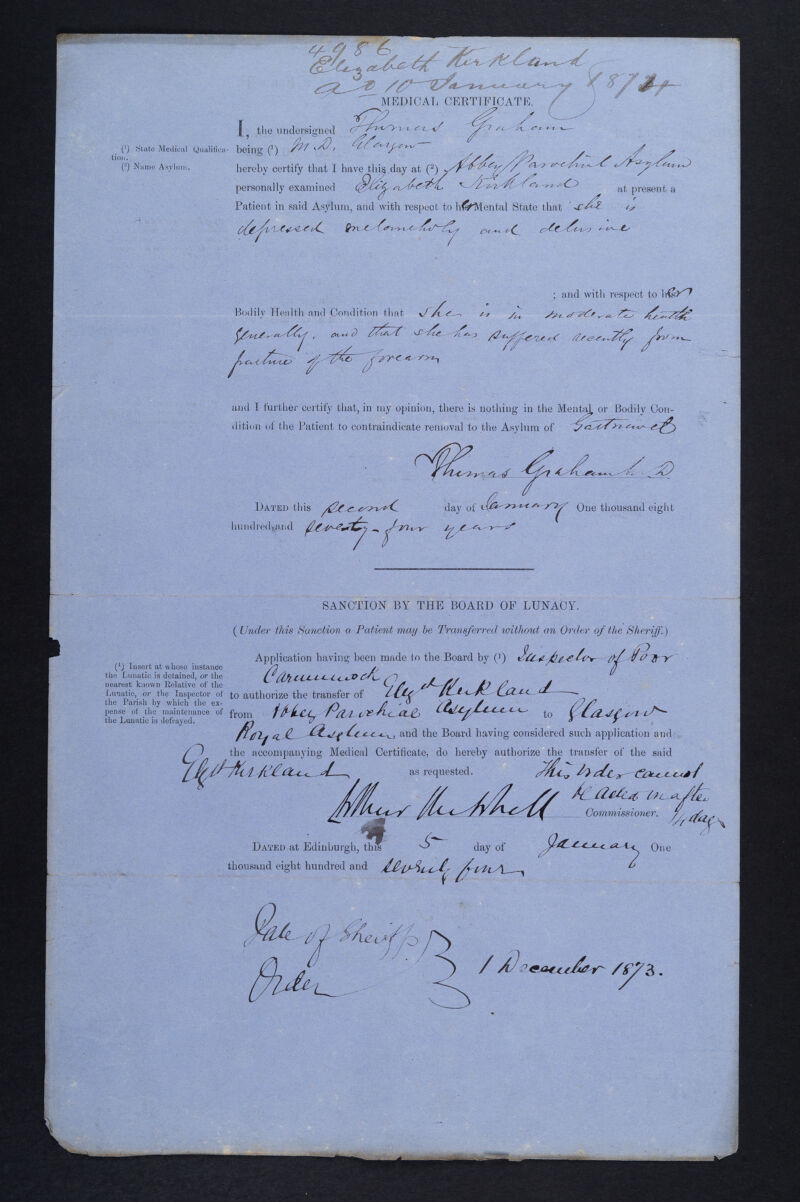 4986
Elizabeth Kirkland
ad 10 January 1874
MEDICAL CERTIFICATE.
I, the undersigned Thomas Graham
(1) State Medical Qualification.
(2) Name Asylum.
being (1) M.D. Glasgow
hereby certify that I have this day at (2) Abbey Parochial Asylum
personally examined Elizabeth Kirkland at present a
Patient in said Asylum, and with respect to her Mental State that she is
depressed melancholy and delusive
; and with respect to her
Bodily Health and Condition that she is in moderate health
generally, and that she has suffered recently from
fracture of the forearm
and I further certify that, in my opinion, there is nothing in the Mental or Bodily Con-
dition of the Patient to contraindicate removal to the Asylum of Gartnavel
Thomas Graham M.D.
DATED this second day of January One thousand eight
hundred and seventy-four years
SANCTION BY THE BOARD OF LUNACY.
(Under this Sanction a Patient may be Transferred without an Order of the Sheriff.)
(1) Insert at whose instance
the Lunatic is detained, or the
nearest known Relative of the
Lunatic, or the Inspector of
the Parish by which the ex-
pense of the maintenance of
the Lunatic is defrayed.
Application having been made to the Board by (1) Inspector of Poor
Carmunnock
to authorize the transfer of Elizth Kirkland
from Abbey Parochial Asylum to Glasgow
Royal Asylum and the Board having considered such application and
the accompanying Medical Certificate, do hereby authorize the transfer of the said
Elizth Kirkland as requested. This order cannot
be acted on after
Arthur Mitchell Commissioner. 14 days
DATED at Edinburgh, this 5 day of January One
thousand eight hundred and seventy four
Date of Sheriff's
Order
1 December 1873.